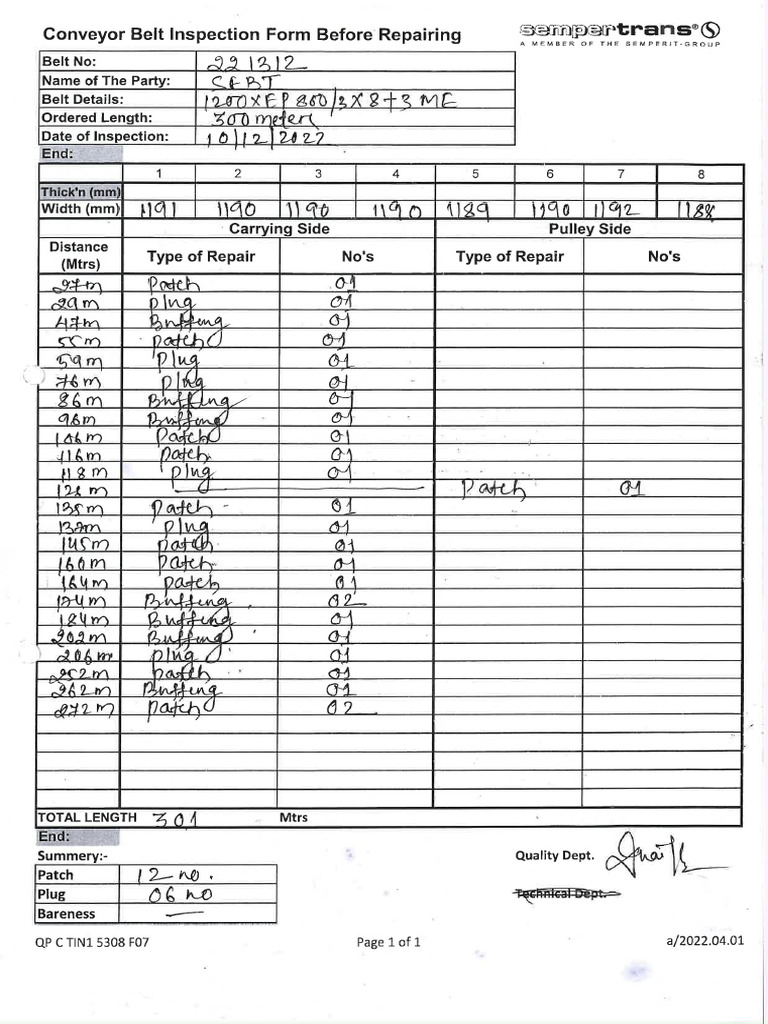 Conveyor Belt Inspection Form Before Repairing
sempertrans®
A MEMBER OF THE SEMPERIT-GROUP
Belt No: 221312
Name of The Party:
Belt Details: 1200XEP800/3X8+3 ME
Ordered Length: 300 meters
Date of Inspection: 10/12/2022
End:
1 2 3 4 5 6 7 8
Thick'n (mm)
Width (mm) 1191 1190 1190 1190 1189 1190 1192 1188
Carrying Side Pulley Side
Distance (Mtrs) Type of Repair No's Type of Repair No's
27m Patch 01
29m Plug 01
47m Buffing 01
55m Patch 01
59m Plug 01
76m Plug 01
86m Buffing 01
96m Buffing 01
106m Patch 01
116m Patch 01
118m Plug 01
128m Patch 01
135m Patch 01
137m Plug 01
145m Patch 01
160m Patch 01
164m Patch 01
174m Buffing 02
184m Buffing 01
202m Buffing 01
206m Plug 01
252m Patch 01
262m Buffing 01
272m Patch 02
TOTAL LENGTH 301 Mtrs
End:
Summery:-
Quality Dept.
Patch 12 no.
Plug 06 no
Technical Dept.
Bareness —
QP C TIN1 5308 F07 Page 1 of 1 a/2022.04.01